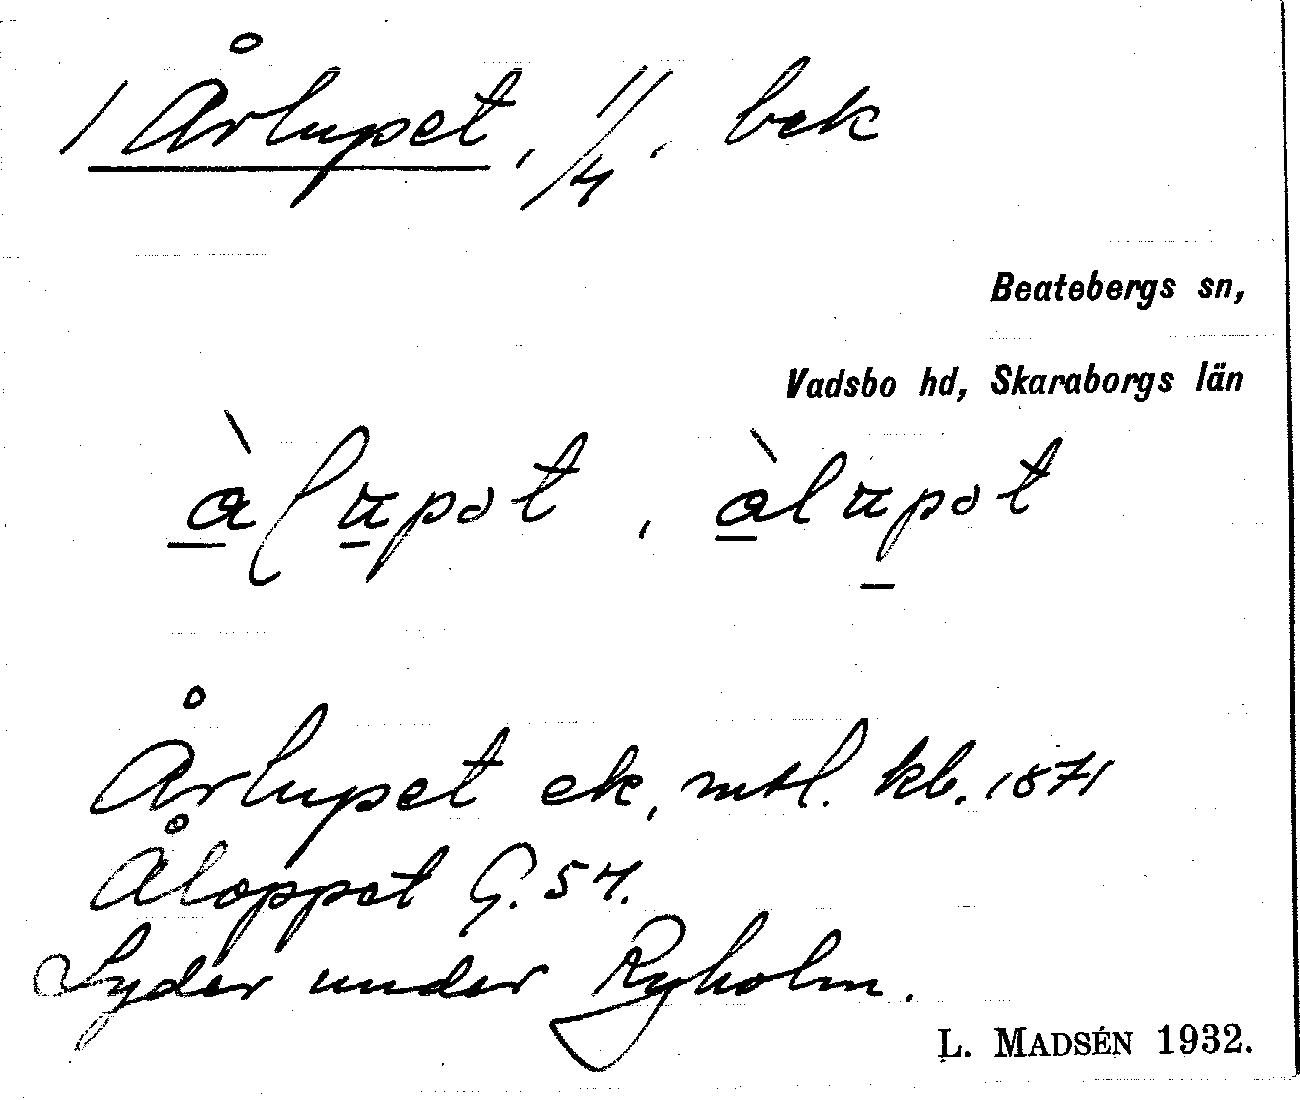 1 Årlupet, 11/4. bek
Beatebergs sn,
Vadsbo hd, Skaraborgs län
Årlupet ek, mtl. kb. 1871
Åloppet G. 57.
Lyder under Ryholm.
L. MADSÉN 1932.